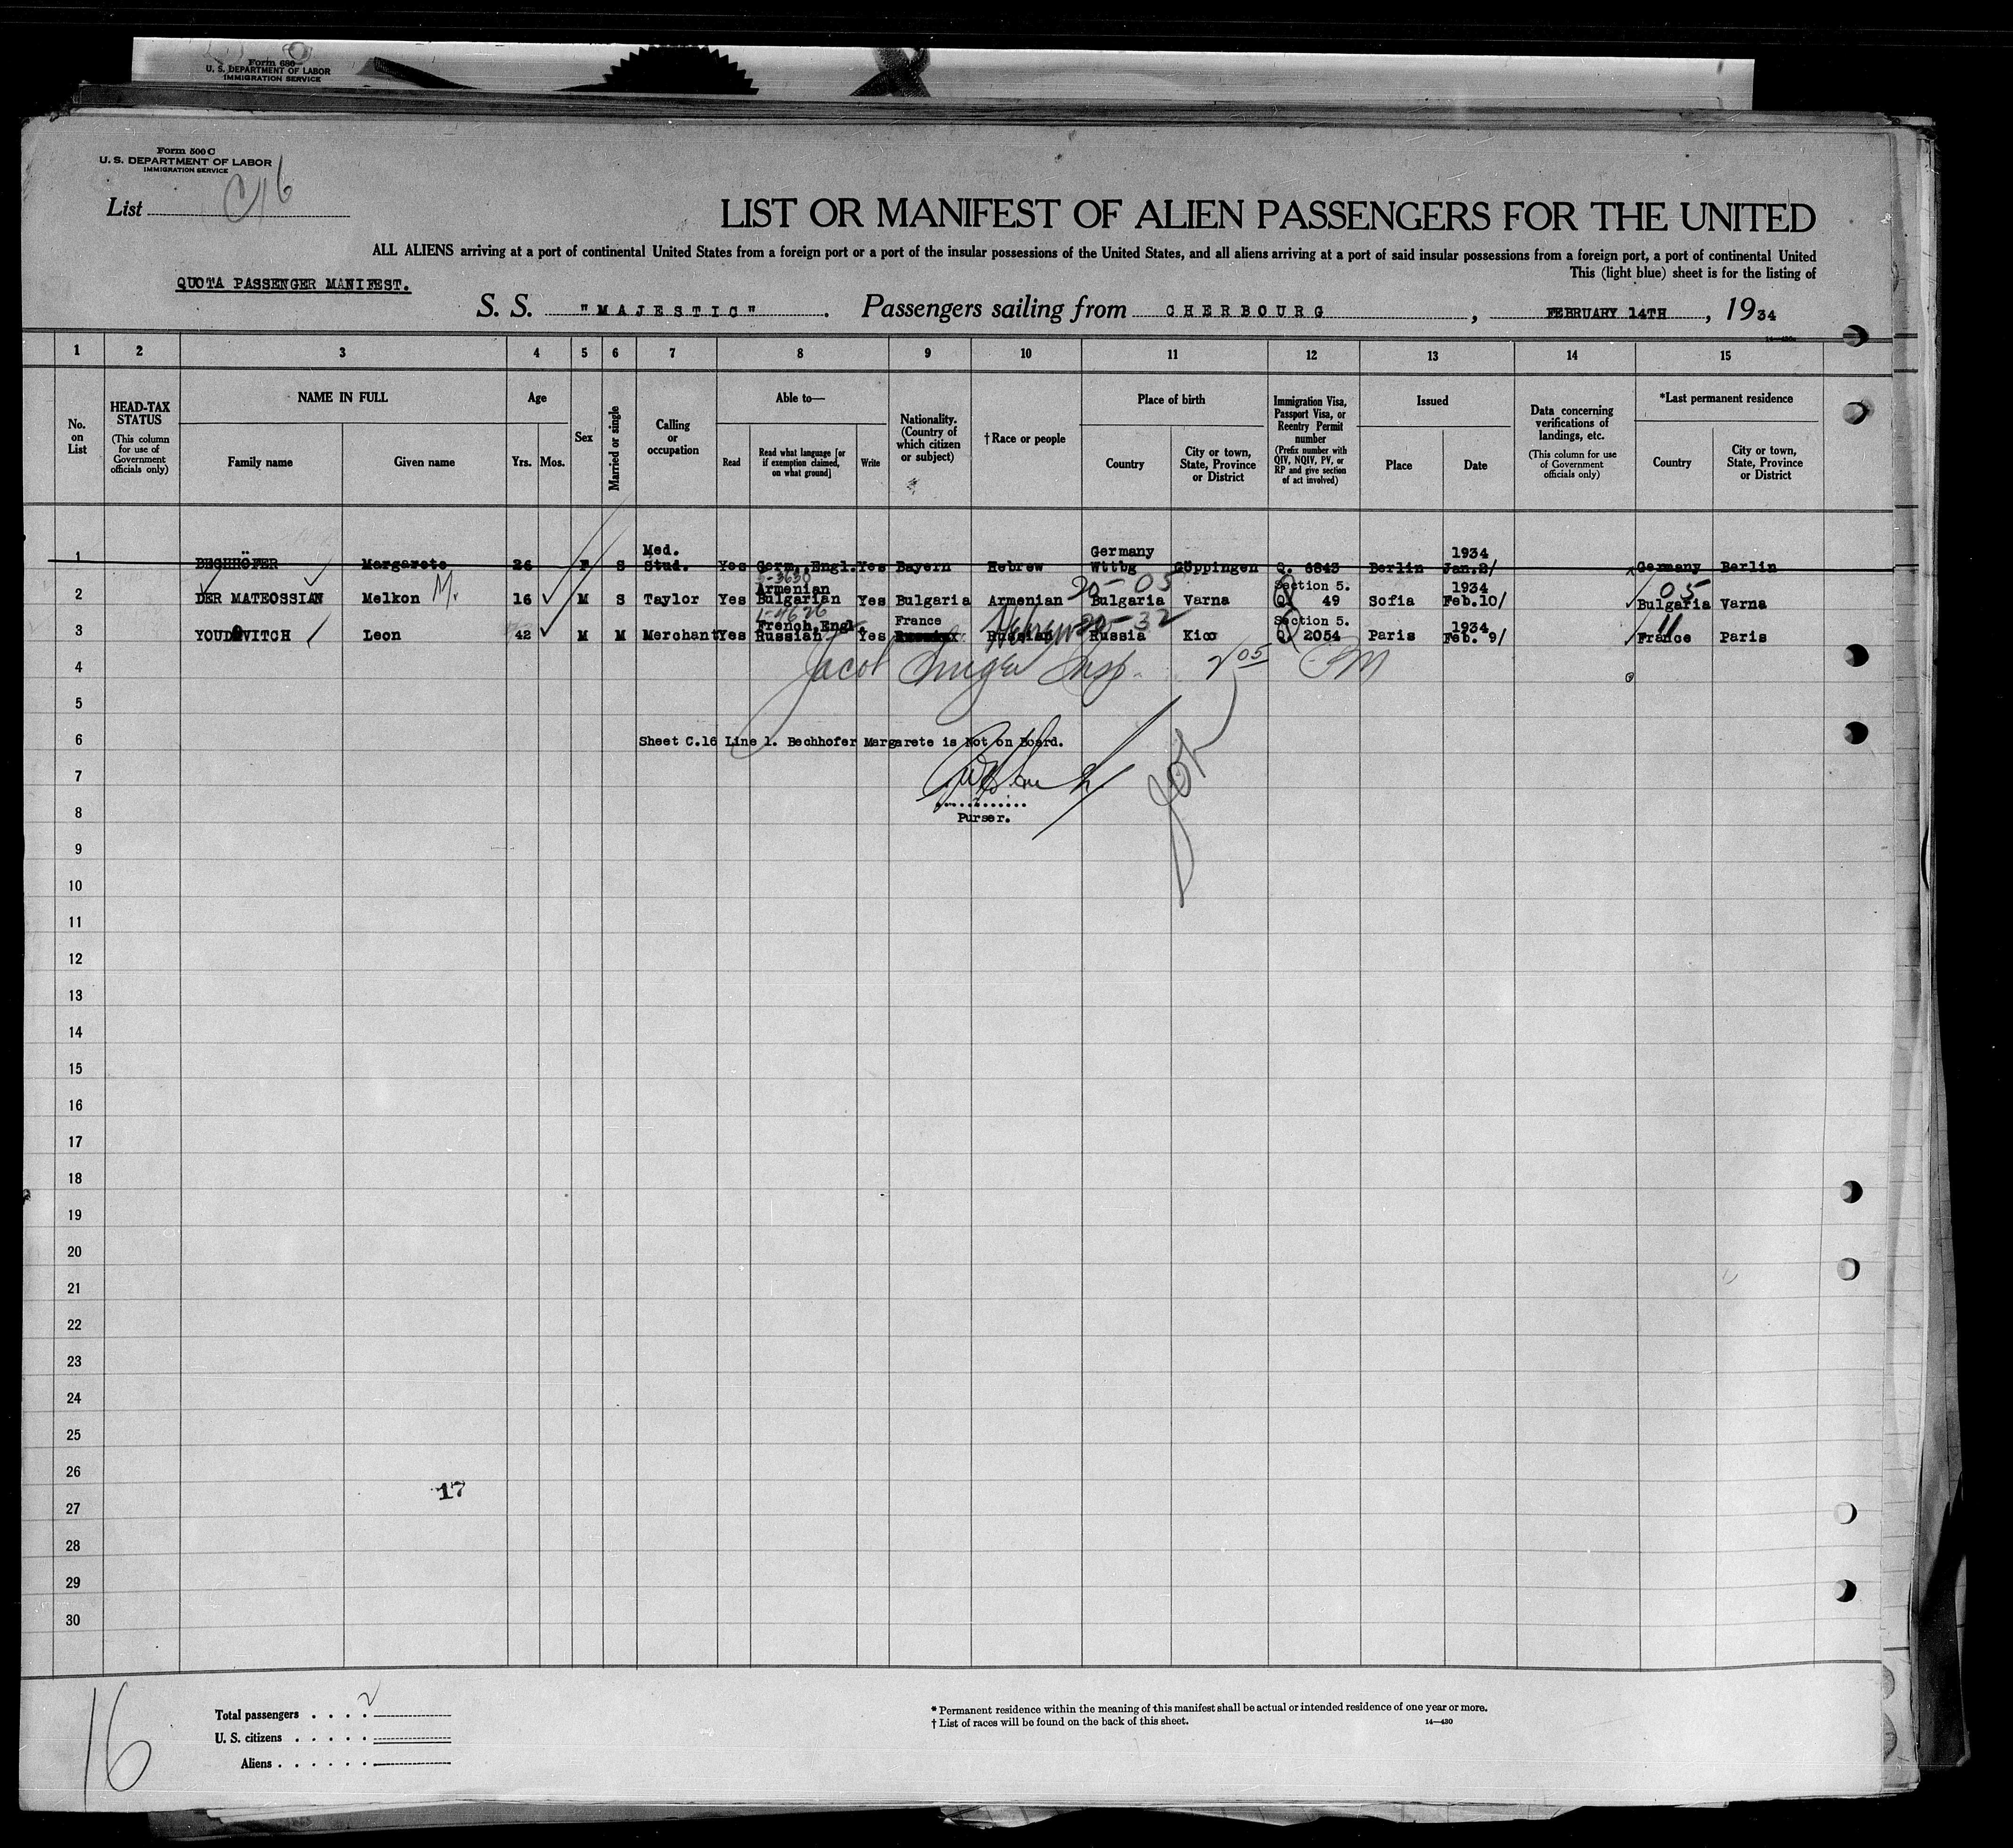 Form 680
U. S. DEPARTMENT OF LABOR
IMMIGRATION SERVICE
Form 500 C
U. S. DEPARTMENT OF LABOR
IMMIGRATION SERVICE
List C16
LIST OR MANIFEST OF ALIEN PASSENGERS FOR THE UNITED
ALL ALIENS arriving at a port of continental United States from a foreign port or a port of the insular possessions of the United States, and all aliens arriving at a port of said insular possessions from a foreign port, a port of continental United
This (light blue) sheet is for the listing of
QUOTA PASSENGER MANIFEST.
S. S. "MAJESTIC" . Passengers sailing from CHERBOURG , FEBRUARY 14TH , 1934
1 2 3 4 5 6 7 8 9 10 11 12 13 14 15
No. on List
HEAD-TAX STATUS
(This column for use of Government officials only)
NAME IN FULL
Family name Given name
Age
Yrs. Mos.
Sex
Married or single
Calling or occupation
Able to—
Read
Read what language [or if exemption claimed, on what ground]
Write
Nationality. (Country of which citizen or subject)
†Race or people
Place of birth
Country
City or town, State, Province or District
Immigration Visa, Passport Visa, or Reentry Permit number
(Prefix number with QIV, NQIV, PV, or RP and give section of act involved)
Issued
Place Date
Data concerning verifications of landings, etc.
(This column for use of Government officials only)
*Last permanent residence
Country
City or town, State, Province or District
Med. Germany 1934
1 BECHHÖFER Margarete 26 F S Stud. Yes Germ.,Engl. Yes Bayern Hebrew Wttbg Göppingen Q. 6843 Berlin Jan.2/ Germany Berlin
5-3630
Armenian 20-05 Section 5. 1934 05
2 DER MATEOSSIAN Melkon M. 16 M S Taylor Yes Bulgarian Yes Bulgaria Armenian Bulgaria Varna Q. 49 Sofia Feb.10/ Bulgaria Varna
French,Engl. France Hebrew 20-32 Section 5. 1934 11
3 YOUDOVITCH Leon 42 M M Merchant Yes Russian Yes Russian Russia Q. 2054 Paris Feb. 9/ France Paris
4 Jacob Insp. 205
5
6 Sheet C.16 Line 1. Bechhofer Margarete is Not on Board.
7
8 Purser.
9
10
11
12
13
14
15
16
17
18
19
20
21
22
23
24
25
26
17
27
28
29
30
16
Total passengers . . . . 2
U. S. citizens . . . . .
Aliens . . . . . .
* Permanent residence within the meaning of this manifest shall be actual or intended residence of one year or more.
† List of races will be found on the back of this sheet. 14—430